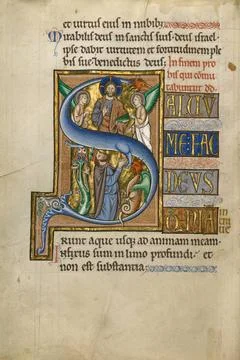 et uirtus eius in nubib;
Mirabilis deus in sanctis suis deus israel
ipse dabit uirtutem et fortitudinem ple
bis sue benedictus deus; In finem pro
his qui cōmu
tabuntur dd
SALVU
ME FAC
DEUS
QM̄ IN
TRA
UE
RUNT aque usq; ad animam meam.
Infixus sum in limo profundi et
non est substantia;